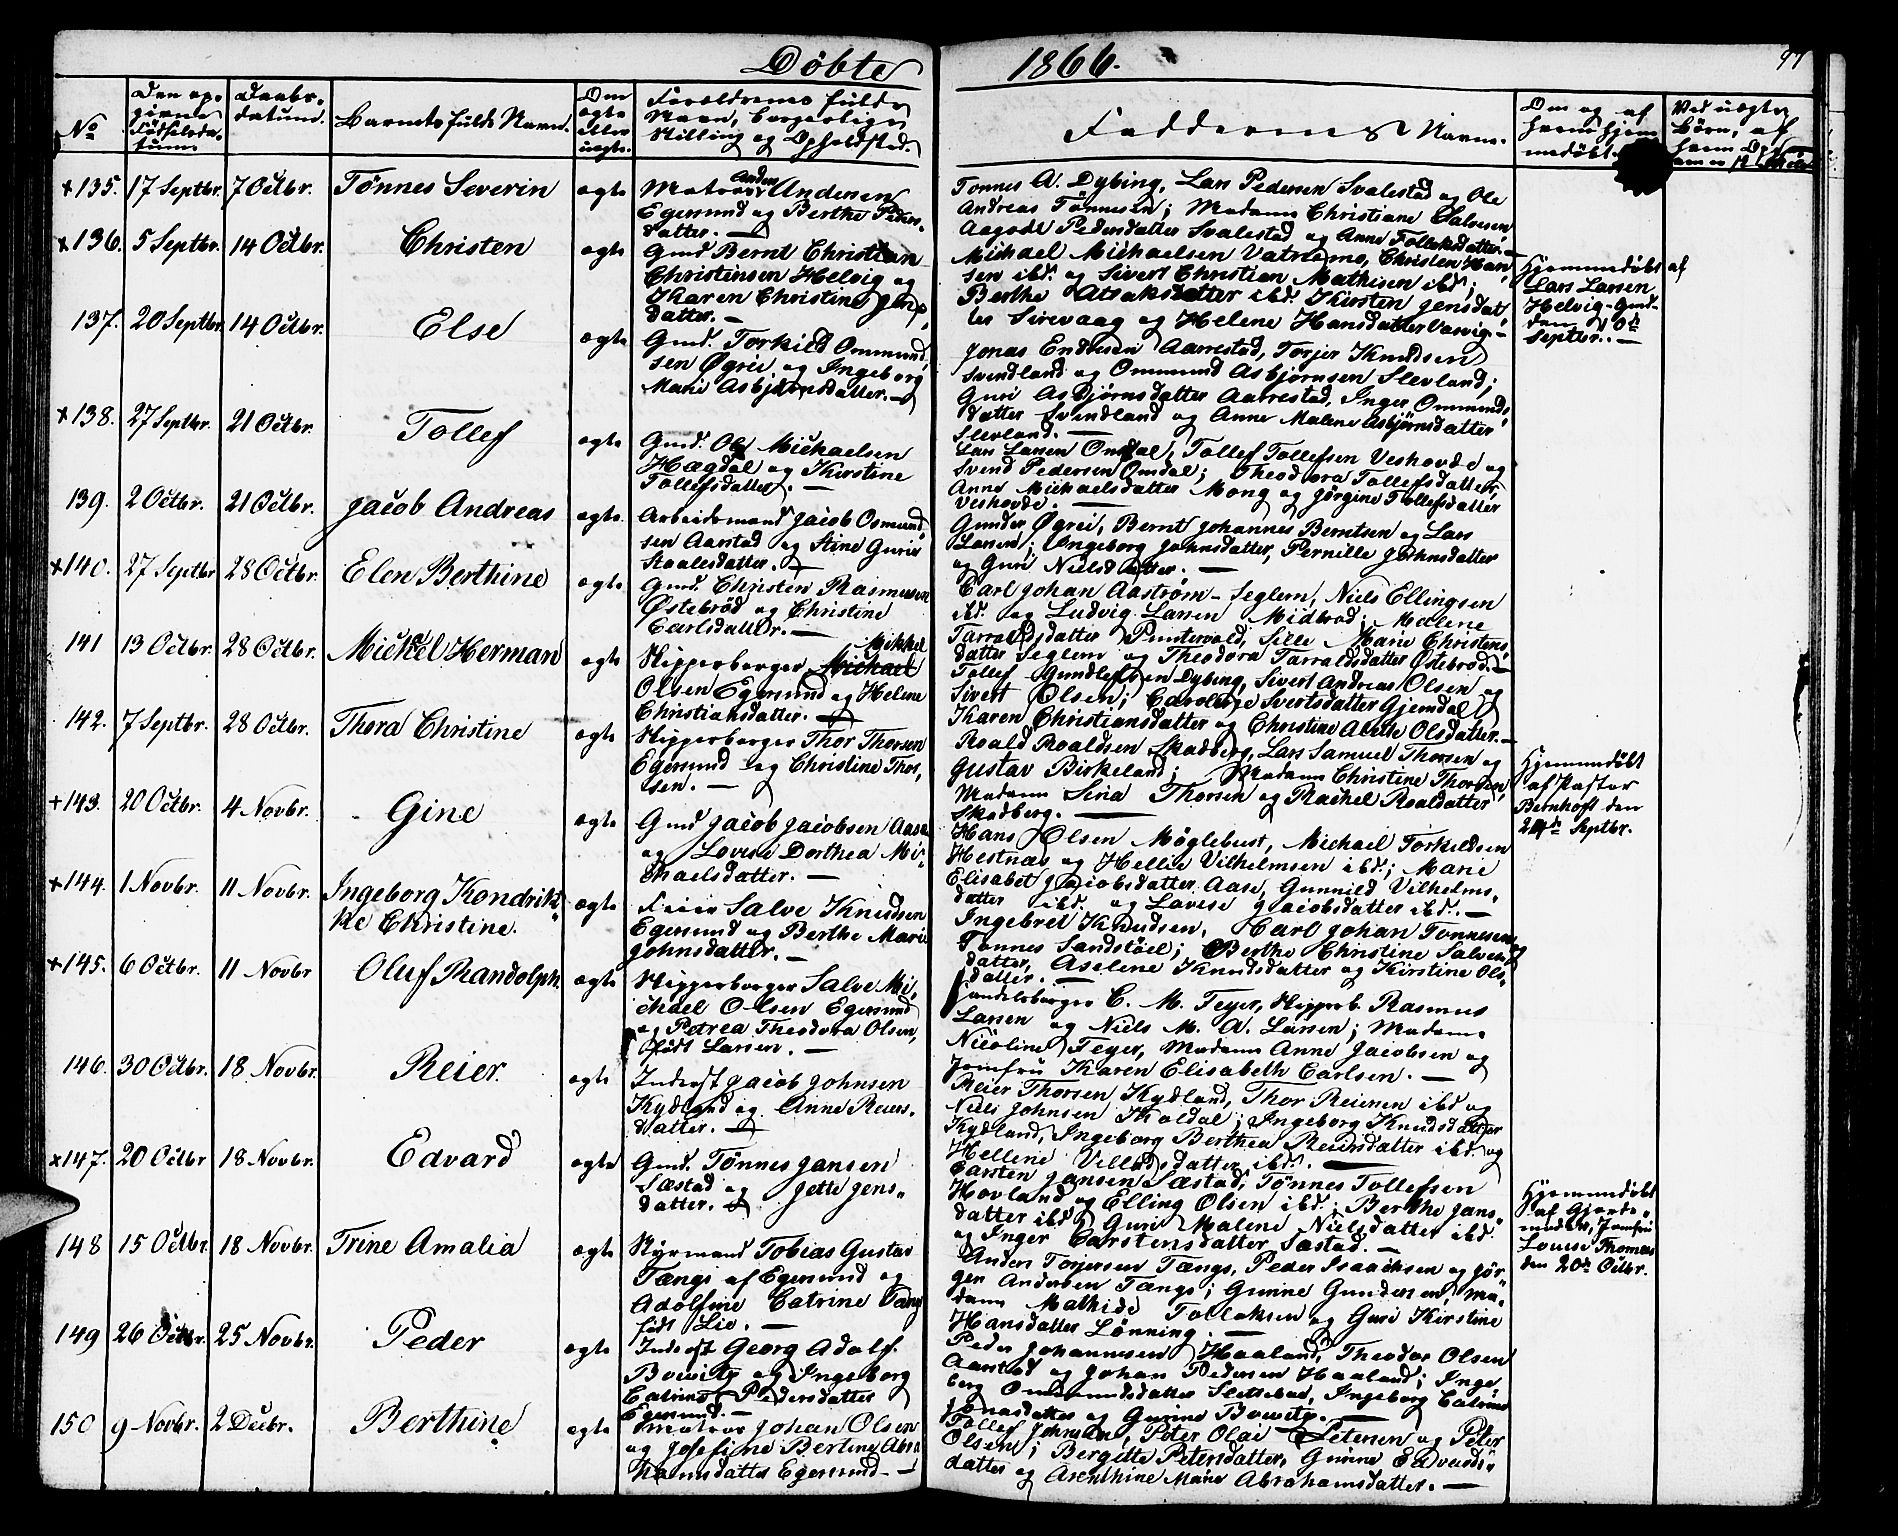 Döbte 1866. 97
No
Den op-
givne
Födselsda-
tum
Daabs-
datum.
Barnets fulde Navn.
Om
ægte
eller
uægte.
Forældrenes fulde
Navn, borgerlige
Stilling og Opholdsted.
Faddernes Navne.
Om og af
hvem hjem-
medøbt.
Ved uægte
Börn, af
hvem
+135. 17 Septbr. 7 Octbr. Tönnes Severin ægte
Matros Anders Andersen
Egersund og Berthe Peders-
datter. —
Tonnes A. Dybing, Lars Pedersen Svalestad og Ole
Andreas Tönnesen; Madame Christiane Salvesen,
Aagode Pedersdatter Svalestad og Anne Tollaksdatter. —
+136. 5 Septbr. 14 Octbr. Christen ægte
Gmd Bernt Christian
Christensen Helvig og
Karen Christine Jens-
datter. —
Michael Michaelsen Vatnemo, Christen Han-
sen ibd. og Sivert Christian Mathisen ibd;
Berthe Atlaksdatter ibd. Kirsten Jensdat-
ter Sirevaag og Helene Hansdatter Varvig. —
Hjemmedøbt af
Lars Larsen
Helvig-Gmd-
den 10de
Septbr. —
137. 20 Septbr. 14 Octbr. Else ægte
Gmd. Torkild Ommund-
sen Øgrei og Ingeborg
Marie Asbjörnsdatter. —
Jonas Endresen Aarrestad, Torjer Knudsen
Svindland og Ommund Asbjørnsen Slevland;
Guri Asbjørnsdatter Aarrestad, Inger Ommunds-
datter Svindland og Anne Malene Asbjørnsdatter
Slevland. —
+138. 27 Septbr. 21 Octbr. Tollef ægte
Gmd. Ole Michaelsen
Hægdal og Kirstine
Tollefsdatter. —
Lars Larsen Omdal, Tollef Tollefsen Veshovde og
Svend Pedersen Omdal; Theodora Tollefsdatter,
Anne Michaelsdatter Mong og Jörgine Tollefsdatter
Veshovde. —
139. 2 Octbr. 21 Octbr. Jacob Andreas ægte
Arbeidsmand Jacob Osmund-
sen Aarstad og Stine Gurie
Staalesdatter. —
Gunder Øgrei, Bernt Johannes Berntsen og Lars
Larsen; Ingeborg Johnsdatter, Pernille Johnsdatter
og Guri Nielsdatter. —
+140. 27 Septbr 28 Octbr. Elen Berthine ægte
Gmd. Christen Rasmussen
Østebrød og Christine
Carlsdatter. —
Carl Johan Aaström-Seglem, Niels Ellingsen
ibd. og Ludvig Larsen Midbrød; Malene
Tarraldsdatter Puntervold, Sille Marie Christens-
datter Seglem og Theodora Tarraldsdatter Østebrød. —
141 13 Octbr. 28 Octbr. Michel Herman ægte
Skipperborger Mikkel
Olsen Egersund og Helene
Christiansdatter. —
Tollef Gundersen Dybing, Sivert Andreas Olsen og
Sivert Olsen; Caroline Sivertsdatter Gjemdal,
Karen Christiansdatter og Christine Olsdatter. —
142. 7 Septbr. 28 Octbr. Thora Christine ægte
Skipperborger Thor Thorsen
Egersund og Christine Thor-
sen. —
Roald Roaldsen Skadberg, Lars Samuel Thorsen og
Gustav Birkeland; Madame Christine Thorsen,
Madame Siria Thorsen og Rachel Roaldatter
Skadberg. —
Hjemmedøbt
af Pastor
Bernhoft den
Septbr.
+143. 20 Octbr. 4 Novbr. Gine ægte
Gmd Jacob Jacobsen Aase
og Lovise Dorthea Mi-
chaelsdatter. —
Hans Olsen Møglebust, Michael Torkildsen
Hestnæs og Hellie Vilhelmsen ibd; Marie
Elisabet Jacobsdatter Aase, Gunnild Vilhelms-
datter ibd. og Lovise Jacobsdatter ibd. —
+144. 1 Novbr. 11 Novbr. Ingeborg Hendrik-
ke Christine. ægte
Feier Salve Knudsen
Egersund og Berthe Marie
Johnsdatter. —
Ingebret Knudsen, Karl Johan Tonnesen og
Tonnes Sandstöel; Berthe Christine Salves-
datter, Aselene Knudsdatter og Kirstine Ols-
datter. —
+145. 6 Octbr. 11 Novbr Oluf Randolph ægte
Skipperborger Salve Mi-
chael Olsen Egersund
og Petrea Theodora Olsen,
født Larsen. —
Handelsborger C. M. Feyer, Skipperb. Rasmus
Larsen og Niels M. A. Larsen; Madame
Nicoline Feyer, Madame Anne Jacobsen og
Jomfru Karen Elisabeth Carlsen. —
146. 30 Octbr. 18 Novbr. Reier. ægte
Inderst Jacob Johnsen
Kydland og Anne Reiers-
datter. —
Reier Thorsen Kydland, Thor Reiersen ibd og
Niels Johnsen Koldal; Ingeborg Knudsdatter
Kydland, Ingeborg Berthea Reiersdatter ibd. og
Hellene Villadsdatter ibd. —
x147. 20 Octbr 18 Novbr. Edvard ægte
Gmd. Tönnes Jansen
Sæstad og Jette Jens-
datter. —
Carsten Jansen Sæstad, Tönnes Tollefsen
Hovland og Elling Olsen ibd; Berthe Jans-
datter ibd, Guri Malene Nielsdatter ibd.
og Inger Carstensdatter Sæstad. —
148 15 Octbr. 18 Novbr. Trine Amalia ægte
Styrmand Tobias Gustav
Tængs af Egersund og
Adolfine Catrine Tang
født Lie. —
Anders Torjersen Tængs, Peder Isaachsen og Jör-
gen Andersen Tængs; Gunne Gundersen, Ma-
dame Mathide Tollaksen og Guri Kirstine
Hansdatter Lønning. —
Hjemmedøbt
af Gjorde-
moder, Jomfru
Louise Thomsen
den 20de Octbr.
149 26 Octbr. 25 Novbr. Peder ægte
Inderst Georg Adolf
Bowitz og Ingeborg
Catrine Pedersdatter
Egersund. —
Peder Johannesen Haaland, Theodor Olsen
Aarstad og Johan Pedersen Haaland; Inge-
borg Ommundsdatter Slettebø, Ingeborg Catrine
Jonasdatter og Gurine Bowitz. —
150 9 Novbr. 2 Decbr. Berthine ægte
Matros Johan Olsen
og Josefine Bertine Abra-
hamsdatter Egersund —
Tollef Johnsen, Peter Olai Petersen og Peter
Olsen; Bergitte Petersdatter, Gurine Edvards-
datter og Arenthine Marie Abrahamsdatter. —